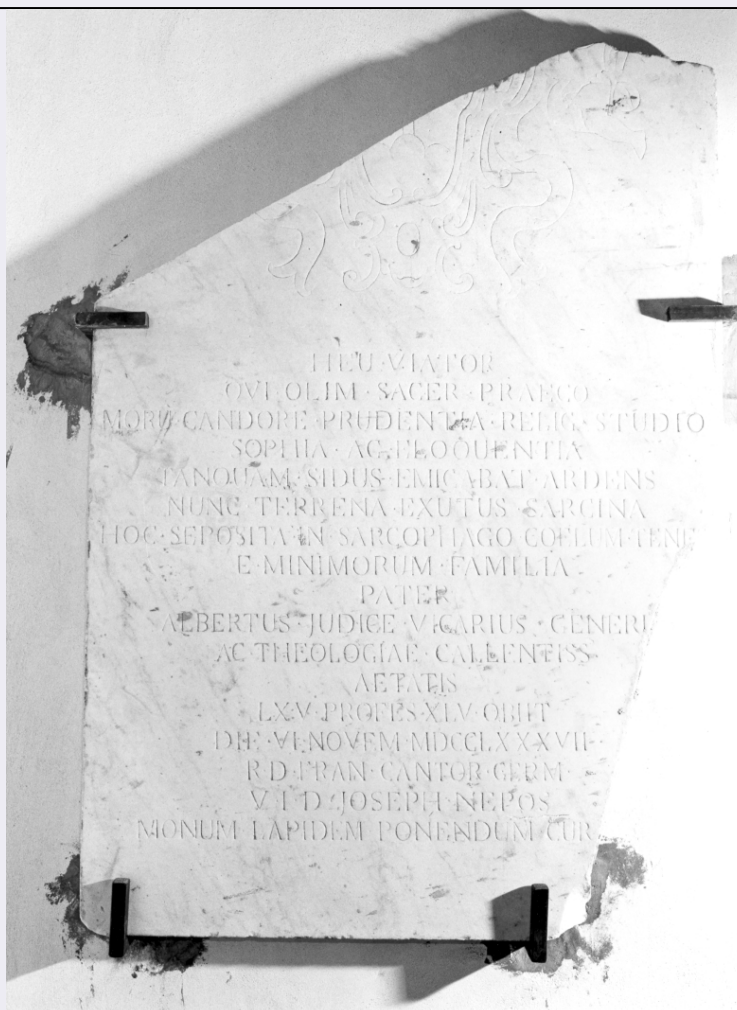 HEU·VIATOR
QVI·OLIM·SACER·PRAECO
MORŪ·CANDORE·PRUDENTIA·RELIG·STUDIO
SOPHIA·AC·ELOQUENTIA
TANQUAM·SIDUS·EMICABAT·ARDENS
NUNC·TERRENA·EXUTUS·SARCINA
HOC·SEPOSITA·IN·SARCOPHAGO·COELUM·TENE
E·MINIMORUM·FAMILIA
PATER
ALBERTUS·JUDICE·VICARIUS·GENERL
AC·THEOLOGIAE·CALLENTISS
AETATIS
LXV·PROFES·XLV·OBIIT
DIE·VI·NOVEM·MDCCLXXXVII·
R·D·FRAN·CANTOR·GERM·
V·I·D·JOSEPH·NEPOS
MONUM·LAPIDEM·PONENDUM·CUR